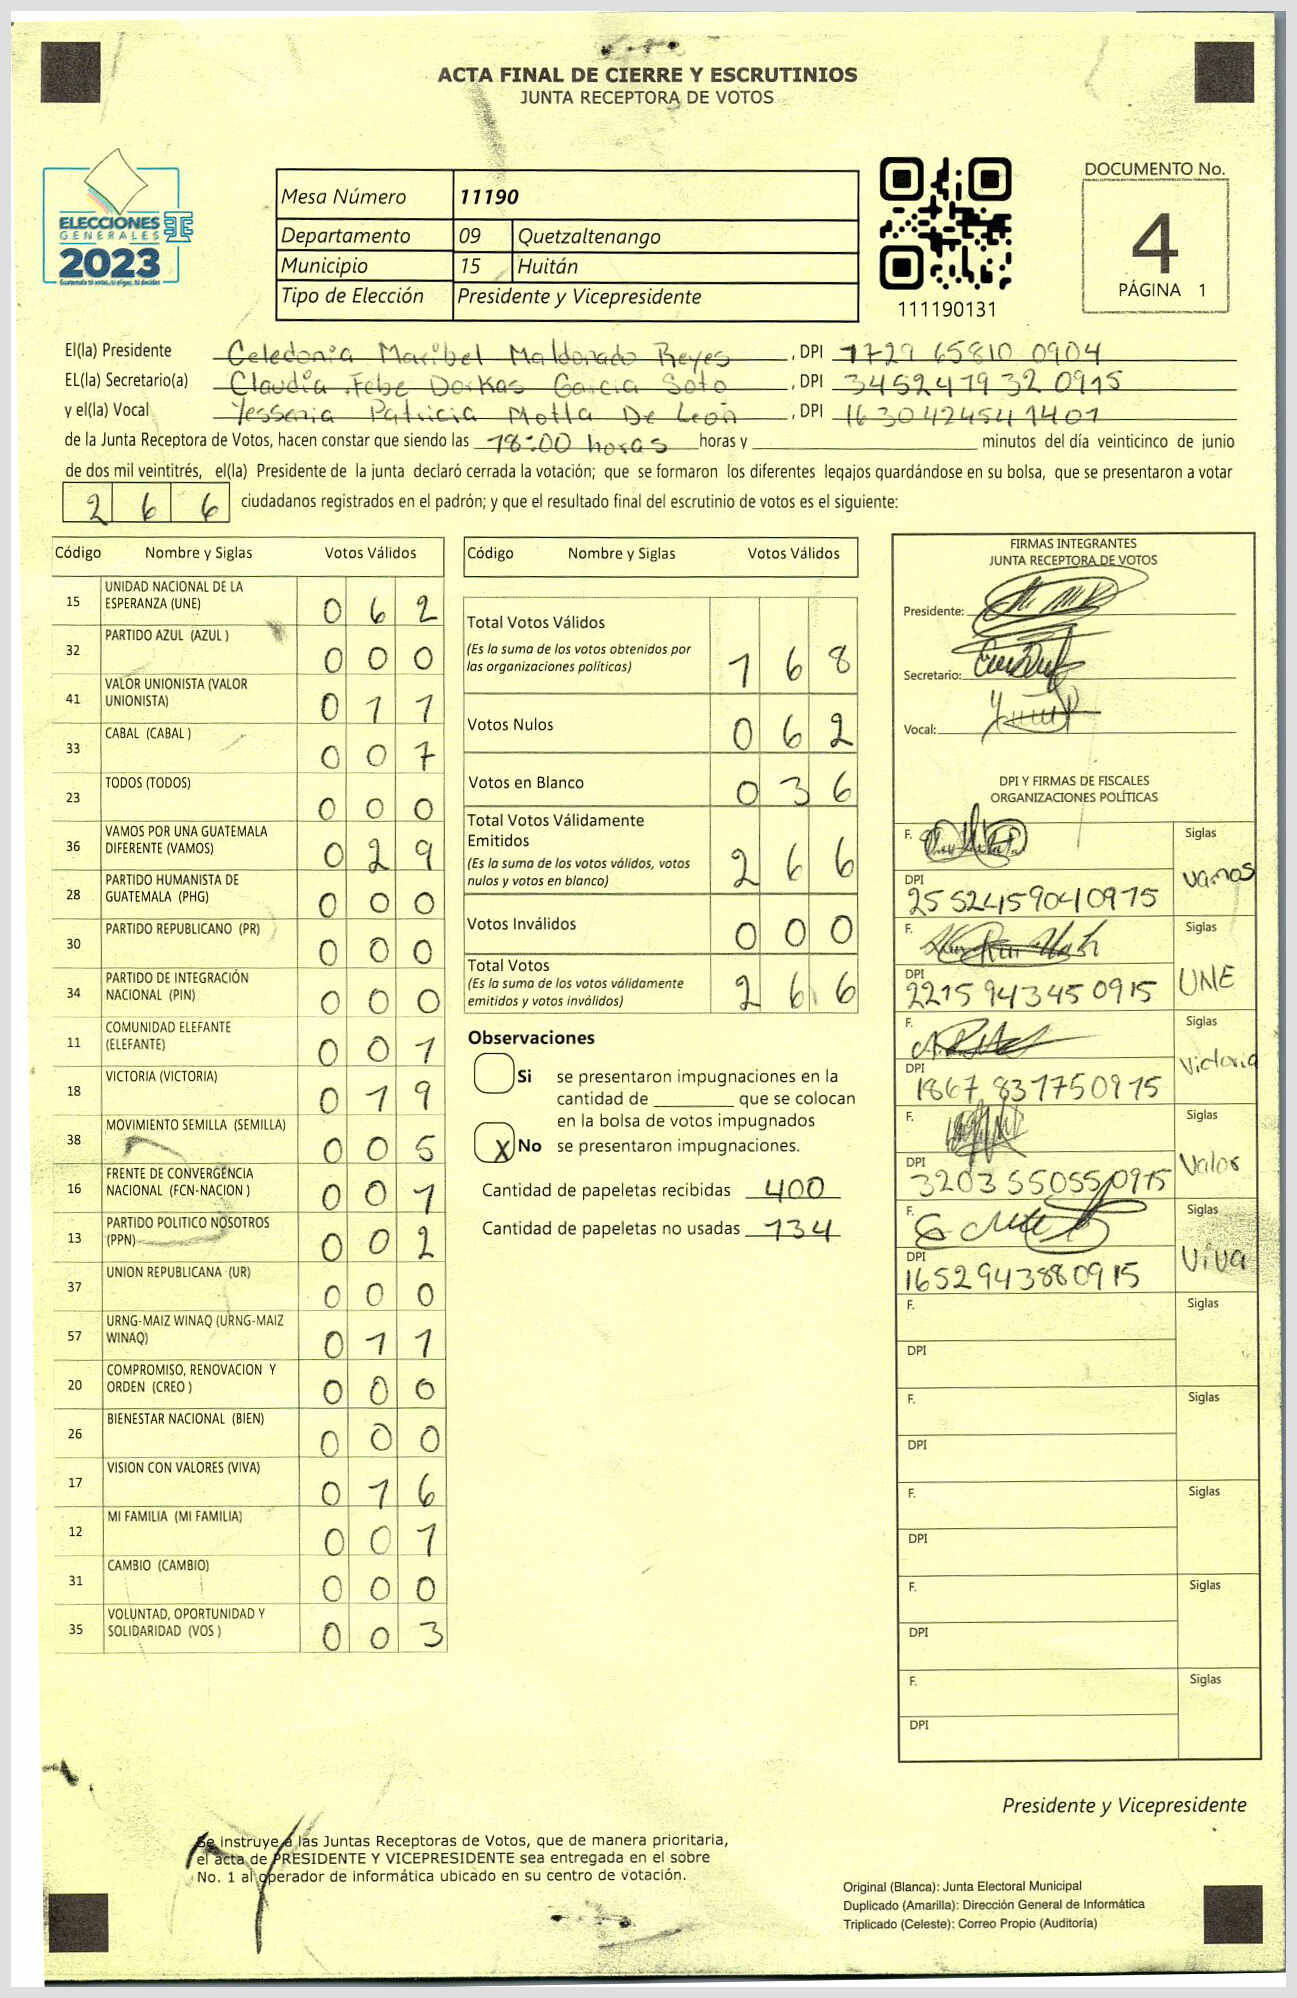 ACTA FINAL DE CIERRE Y ESCRUTINIOS
JUNTA RECEPTORA DE VOTOS
ELECCIONES
GENERALES
2023
Mesa Número 11190
Departamento 09 Quetzaltenango
Municipio 15 Huitán
Tipo de Elección Presidente y Vicepresidente
111190131
DOCUMENTO No.
4
PÁGINA 1
El(la) Presidente Celedonia Maribel Maldonado Reyes , DPI 1729 65810 0904
EL(la) Secretario(a) Claudia Febe Dorkas Garcia Soto , DPI 3452479320915
y el(la) Vocal Yessenia Patricia Motta De León , DPI 1630424541401
de la Junta Receptora de Votos, hacen constar que siendo las 18:00 horas horas y minutos del día veinticinco de junio
de dos mil veintitrés, el(la) Presidente de la junta declaró cerrada la votación; que se formaron los diferentes legajos guardándose en su bolsa, que se presentaron a votar
2 6 6 ciudadanos registrados en el padrón; y que el resultado final del escrutinio de votos es el siguiente:
Código Nombre y Siglas Votos Válidos
15 UNIDAD NACIONAL DE LA ESPERANZA (UNE) 0 6 2
32 PARTIDO AZUL (AZUL ) 0 0 0
41 VALOR UNIONISTA (VALOR UNIONISTA) 0 1 1
33 CABAL (CABAL ) 0 0 7
23 TODOS (TODOS) 0 0 0
36 VAMOS POR UNA GUATEMALA DIFERENTE (VAMOS) 0 2 9
28 PARTIDO HUMANISTA DE GUATEMALA (PHG) 0 0 0
30 PARTIDO REPUBLICANO (PR) 0 0 0
34 PARTIDO DE INTEGRACIÓN NACIONAL (PIN) 0 0 0
11 COMUNIDAD ELEFANTE (ELEFANTE) 0 0 1
18 VICTORIA (VICTORIA) 0 1 9
38 MOVIMIENTO SEMILLA (SEMILLA) 0 0 5
16 FRENTE DE CONVERGENCIA NACIONAL (FCN-NACION ) 0 0 1
13 PARTIDO POLITICO NOSOTROS (PPN) 0 0 2
37 UNION REPUBLICANA (UR) 0 0 0
57 URNG-MAIZ WINAQ (URNG-MAIZ WINAQ) 0 1 1
20 COMPROMISO, RENOVACION Y ORDEN (CREO ) 0 0 0
26 BIENESTAR NACIONAL (BIEN) 0 0 0
17 VISION CON VALORES (VIVA) 0 1 6
12 MI FAMILIA (MI FAMILIA) 0 0 1
31 CAMBIO (CAMBIO) 0 0 0
35 VOLUNTAD, OPORTUNIDAD Y SOLIDARIDAD (VOS ) 0 0 3
Código Nombre y Siglas Votos Válidos
Total Votos Válidos
(Es la suma de los votos obtenidos por
las organizaciones políticas) 1 6 8
Votos Nulos 0 6 2
Votos en Blanco 0 3 6
Total Votos Válidamente
Emitidos
(Es la suma de los votos válidos, votos
nulos y votos en blanco) 2 6 6
Votos Inválidos 0 0 0
Total Votos
(Es la suma de los votos válidamente
emitidos y votos inválidos) 2 6 6
Observaciones
Si se presentaron impugnaciones en la
cantidad de que se colocan
en la bolsa de votos impugnados
X No se presentaron impugnaciones.
Cantidad de papeletas recibidas 400
Cantidad de papeletas no usadas 134
FIRMAS INTEGRANTES
JUNTA RECEPTORA DE VOTOS
Presidente:
Secretario:
Vocal:
DPI Y FIRMAS DE FISCALES
ORGANIZACIONES POLÍTICAS
F. Siglas
DPI Vamos
2552459040975
F. Siglas
DPI UNE
2215943450915
F. Siglas
DPI Victoria
1867 837750915
F. Siglas
DPI Valor
3203550550915
F. Siglas
DPI Viva
1652943880915
F. Siglas
DPI
F. Siglas
DPI
F. Siglas
DPI
F. Siglas
DPI
F. Siglas
DPI
Presidente y Vicepresidente
Se instruye a las Juntas Receptoras de Votos, que de manera prioritaria,
el acta de PRESIDENTE Y VICEPRESIDENTE sea entregada en el sobre
No. 1 al operador de informática ubicado en su centro de votación.
Original (Blanca): Junta Electoral Municipal
Duplicado (Amarilla): Dirección General de Informática
Triplicado (Celeste): Correo Propio (Auditoría)